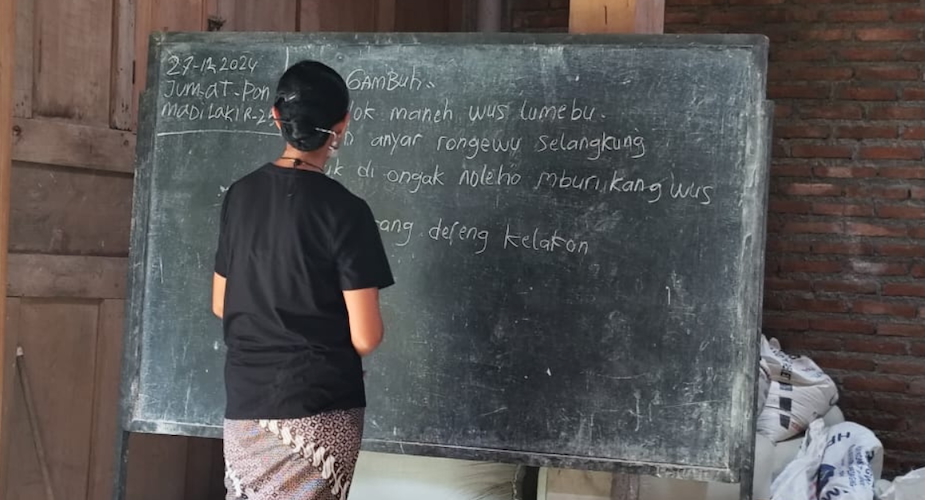 27-12 2024
Jum-at-Pon
GAMBUh.
maneh wus lumebu.
anyar rongewu selangkung
di ongak noleho mburi kang wus
dereng kelakon